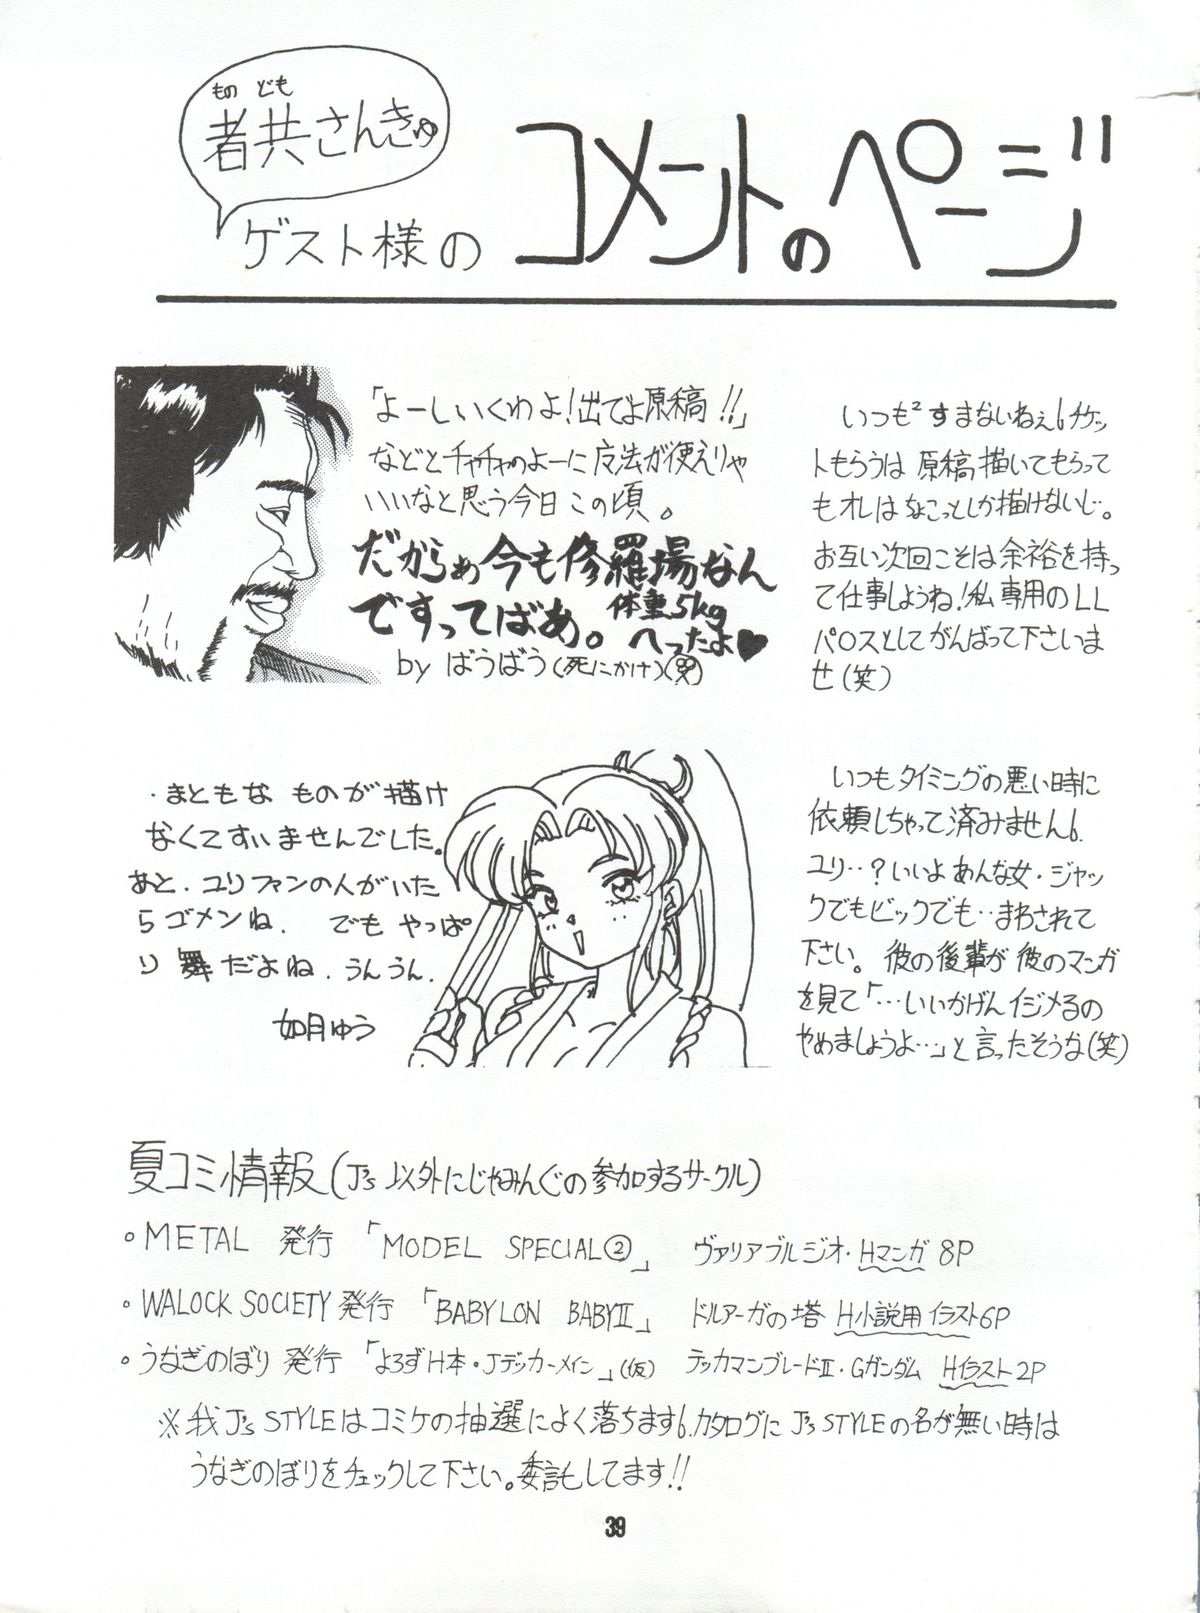 ものども
者共さんきゅ
ゲスト様の コメントのページ
「よーしいくわよ!出でよ原稿!!」
などとチャチャのよーに魔法が使えりゃ
いいなと思う今日この頃。
だからぁ今も修羅場なん
ですってばあ。体重5kg
へったよ♥
by ばうばう(死にかけ)(笑)
いつも²すまないねぇ。チケッ
トもらうは 原稿描いてもらって
もオレはちょこっとしか描けないし。
お互い次回こそは余裕を持っ
て仕事しようね!私専用のLL
パロスとしてがんばって下さいま
せ(笑)
・まともな ものが描け
なくてすいませんでした。
あと、ユリファンの人がいた
らゴメンね. でも やっぱ
り 舞だよね. うんうん.
如月ゅう
いつもタイミングの悪い時に
依頼しちゃって済みません。
ユリ‥?いいよ あんな女・ジャッ
クでもビックでも‥まわされて
下さい。 彼の後輩が 彼のマンガ
を見て「…いいかげんイジメるの
やめましょうよ…」と言ったそうな(笑)
夏コミ情報(J's 以外にじゃみんぐの参加するサークル)
◦METAL 発行 「MODEL SPECIAL②」 ヴァリアブルジオ・Hマンガ 8P
◦WALOCK SOCIETY 発行 「BABYLON BABYⅡ」 ドルアーガの塔 H小説用イラスト6P
◦うなぎのぼり 発行 「よろずH本・Jデッカーメイン」(仮) テッカマンブレードⅡ・Gガンダム Hイラスト2P
※我 J's STYLEはコミケの抽選によく落ちます。カタログに J's STYLEの名が無い時は
うなぎのぼりをチェックして下さい。委託してます!!
39